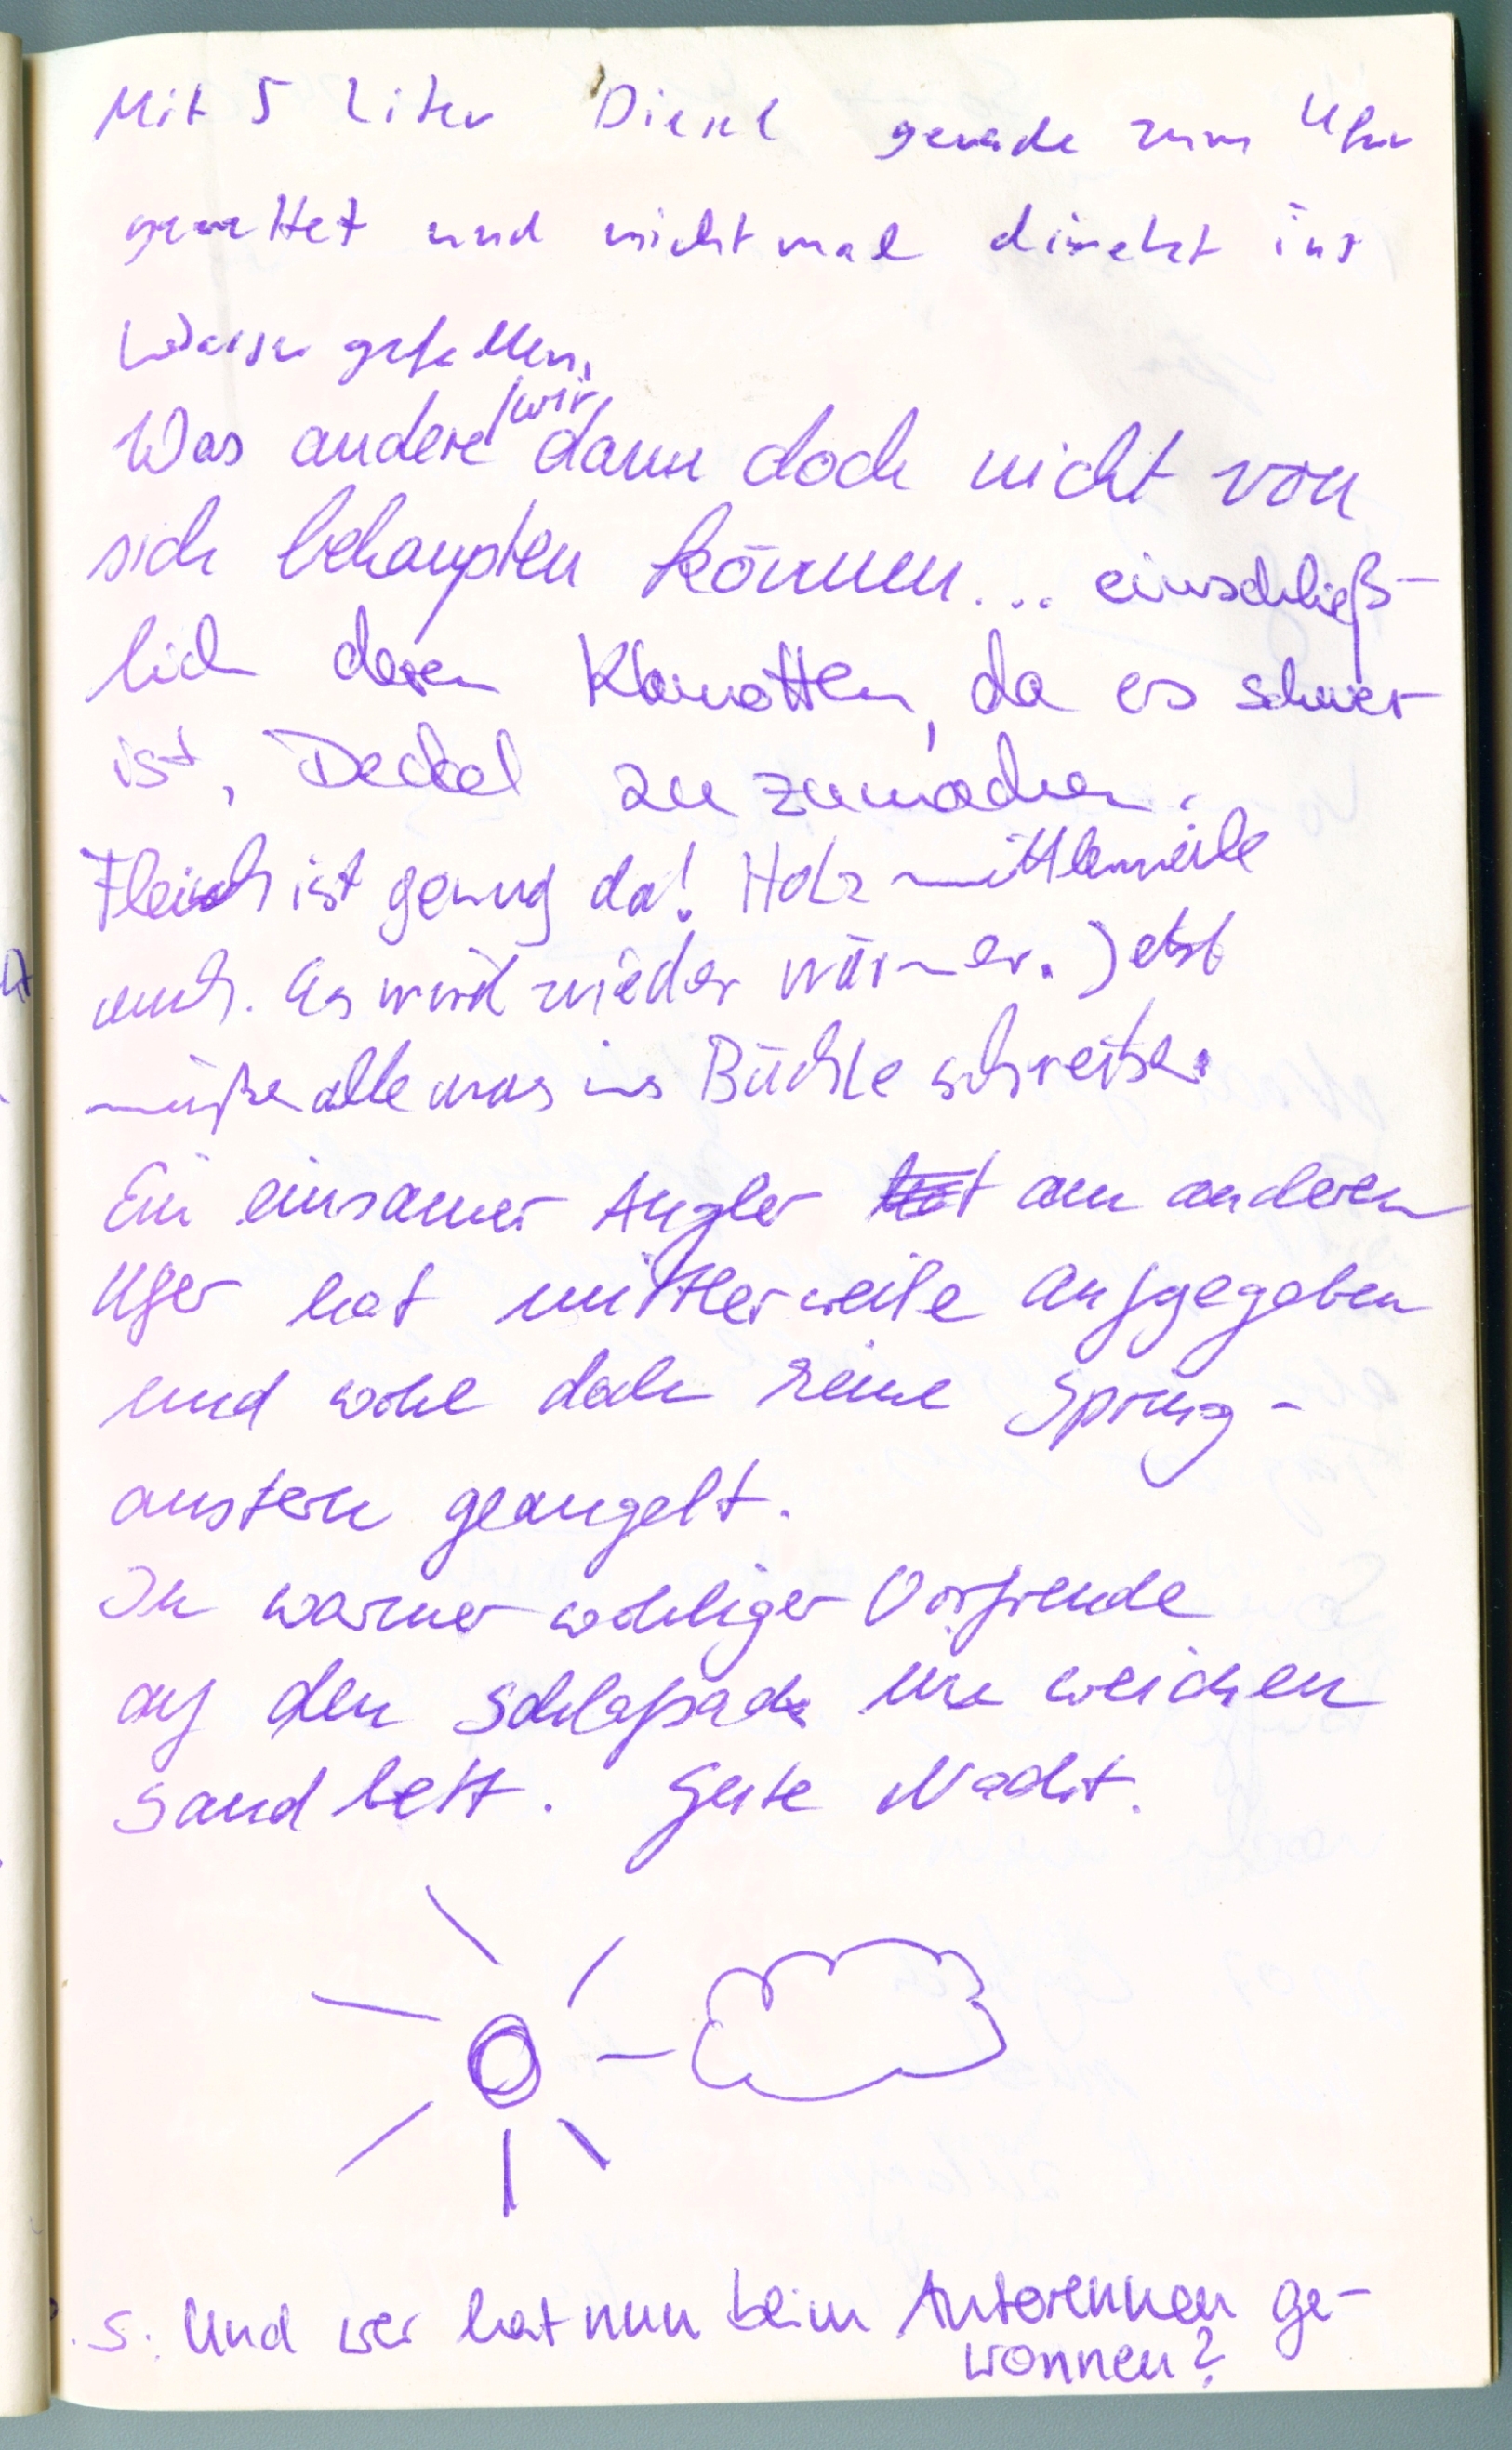 Mit 5 Liter Diesel gerade zum Ufer
gerettet und nicht mal direkt ins
Wasser gefallen.
Was andere (wir) dann doch nicht von
sich behaupten können... einschließ-
lich deren Klamotten, da es schwer
ist, Deckel zu zumachen.
Fleisch ist genug da! Holz mittlerweile
auch. Es wird wieder wärmer. Jetzt
müßen alle was ins Büchle schreiben
Ein einsamer Angler hat am anderen
Ufer hat mittlerweile aufgegeben
und wohl doch keine Spring-
austern geangelt.
In warmer wohliger Vorfreude
auf den Schlafsack im weichen
Sandbett. Gute Nacht.
.S. Und wer hat nun beim Autorennen ge-
wonnen?